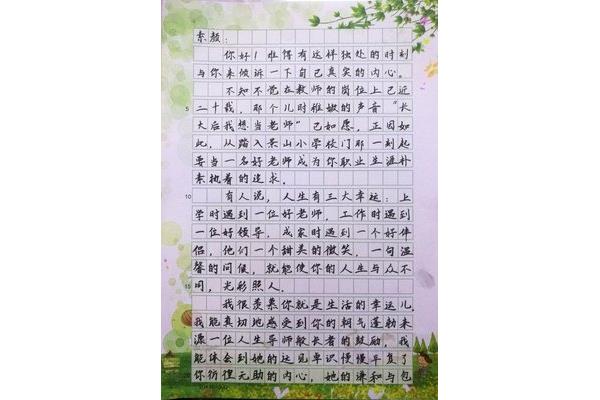 素颜：
你好！难得有这样独处的时刻
与你来倾诉一下自己真实的内心。
不知不觉在教师的岗位上已近
5 二十载，那个儿时稚嫩的声音“长
大后我想当老师”已如愿，正因如
此，从踏入景山小学校门那一刻起
要当一名好老师成为你职业生涯朴
素执着的追求。
10 有人说，人生有三大幸运：上
学时遇到一位好老师，工作时遇到
一位好领导，成家时遇到一个好伴
侣，他们一个甜美的微笑，一句温
馨的问候，就能使你的人生与众不
15 同，光彩照人。
我很羡慕你就是生活的幸运儿，
我能真切地感受到你的朝气蓬勃来
源一位人生导师般长者的鼓励，我
能体会到她的远见卓识慢慢平复了
你彷徨无助的内心，她的谦和与包